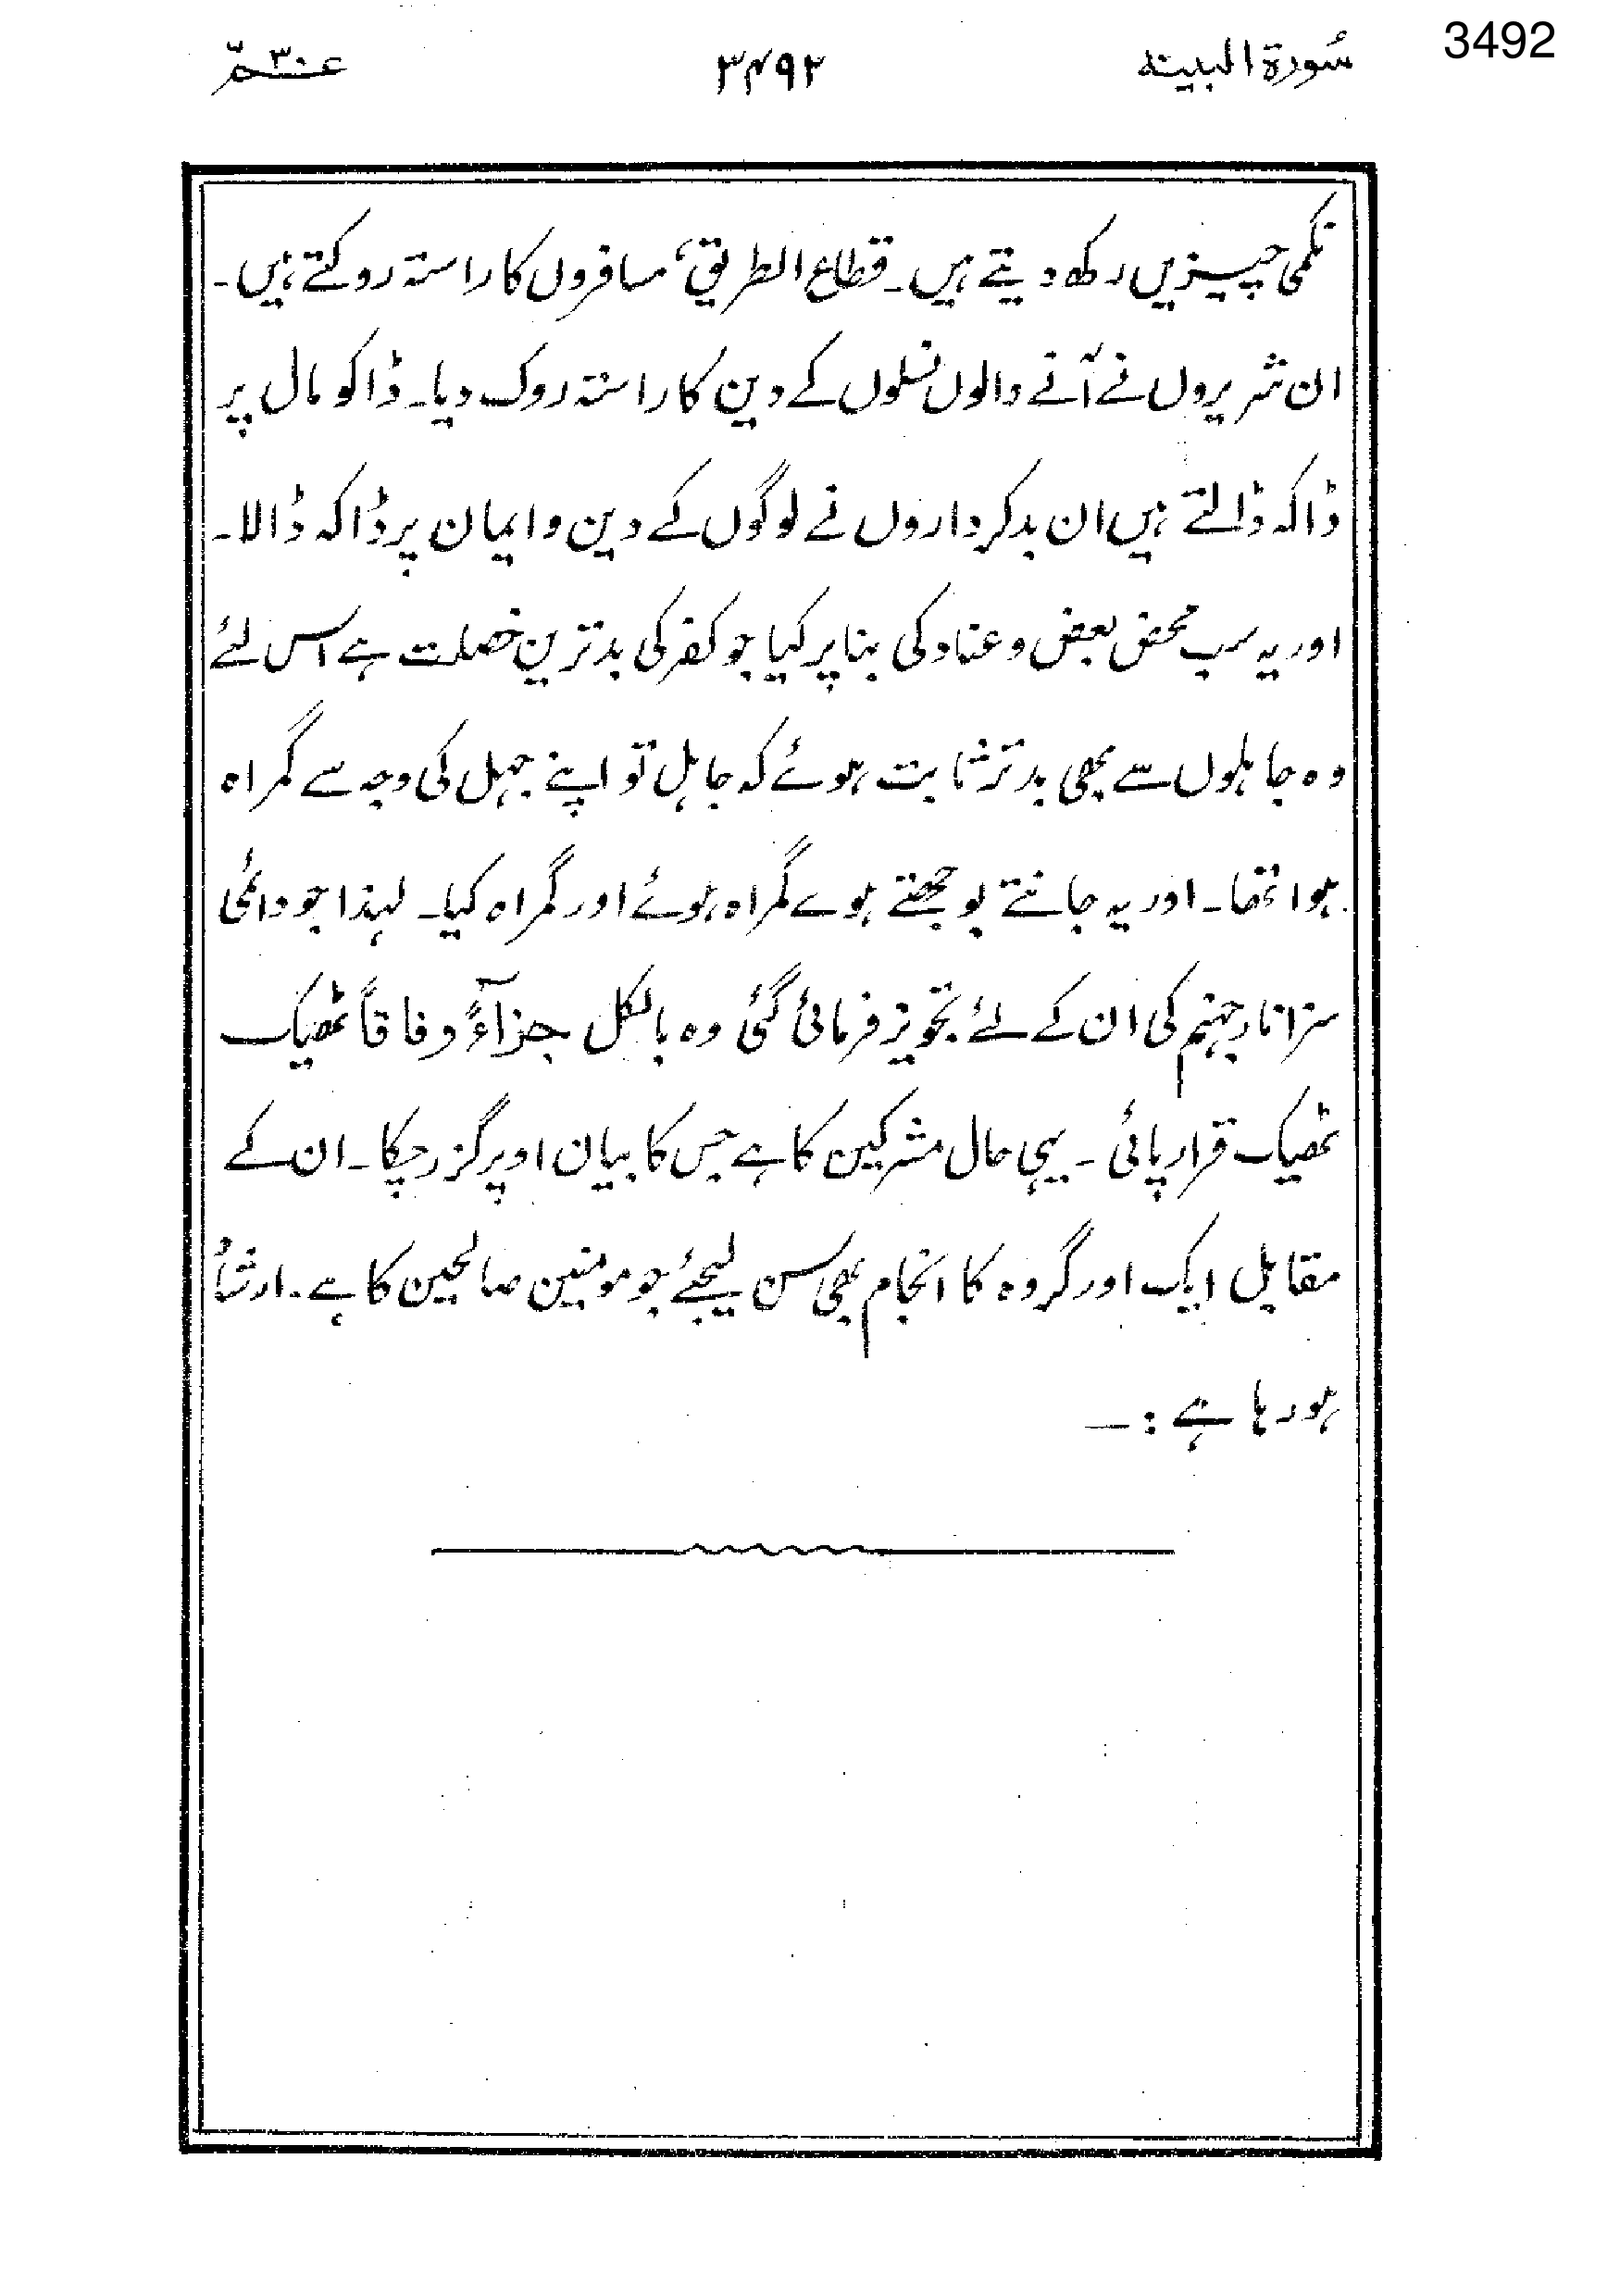 3492
سُورۃ البینہ ۳۴۹۲ عــمّ ۳۰
نکمی چیزیں رکھ دیتے ہیں۔ قطاع الطریق، مسافروں کا راستہ روکتے ہیں۔
ان شریروں نے آنے والوں نسلوں کے دین کا راستہ روک دیا۔ ڈاکو مال پر
ڈاکہ ڈالتے ہیں ان بدکرداروں نے لوگوں کے دین و ایمان پر ڈاکہ ڈالا۔
اور یہ سب محض بعض و عناد کی بنا پر کیا جو کفر کی بدترین خصلت ہے اس لئے
وہ جاہلوں سے بھی بدتر ثابت ہوئے کہ جاہل تو اپنے جہل کی وجہ سے گمراہ
ہوا تھا۔ اور یہ جانتے بوجھتے ہوے گمراہ ہوئے اور گمراہ کیا۔ لہٰذا جو دائمی
سزا نار جہنم کی ان کے لئے تجویز فرمائی گئی وہ بالکل جزآءً وفاقاً ٹھیک
ٹھیک قرار پائی۔ یہی حال مشرکین کا ہے جس کا بیان اوپر گزر چکا۔ ان کے
مقابل ایک اور گروہ کا انجام بھی سن لیجئے جو مومنین صالحین کا ہے۔ ارشاد
ہو رہا ہے :—